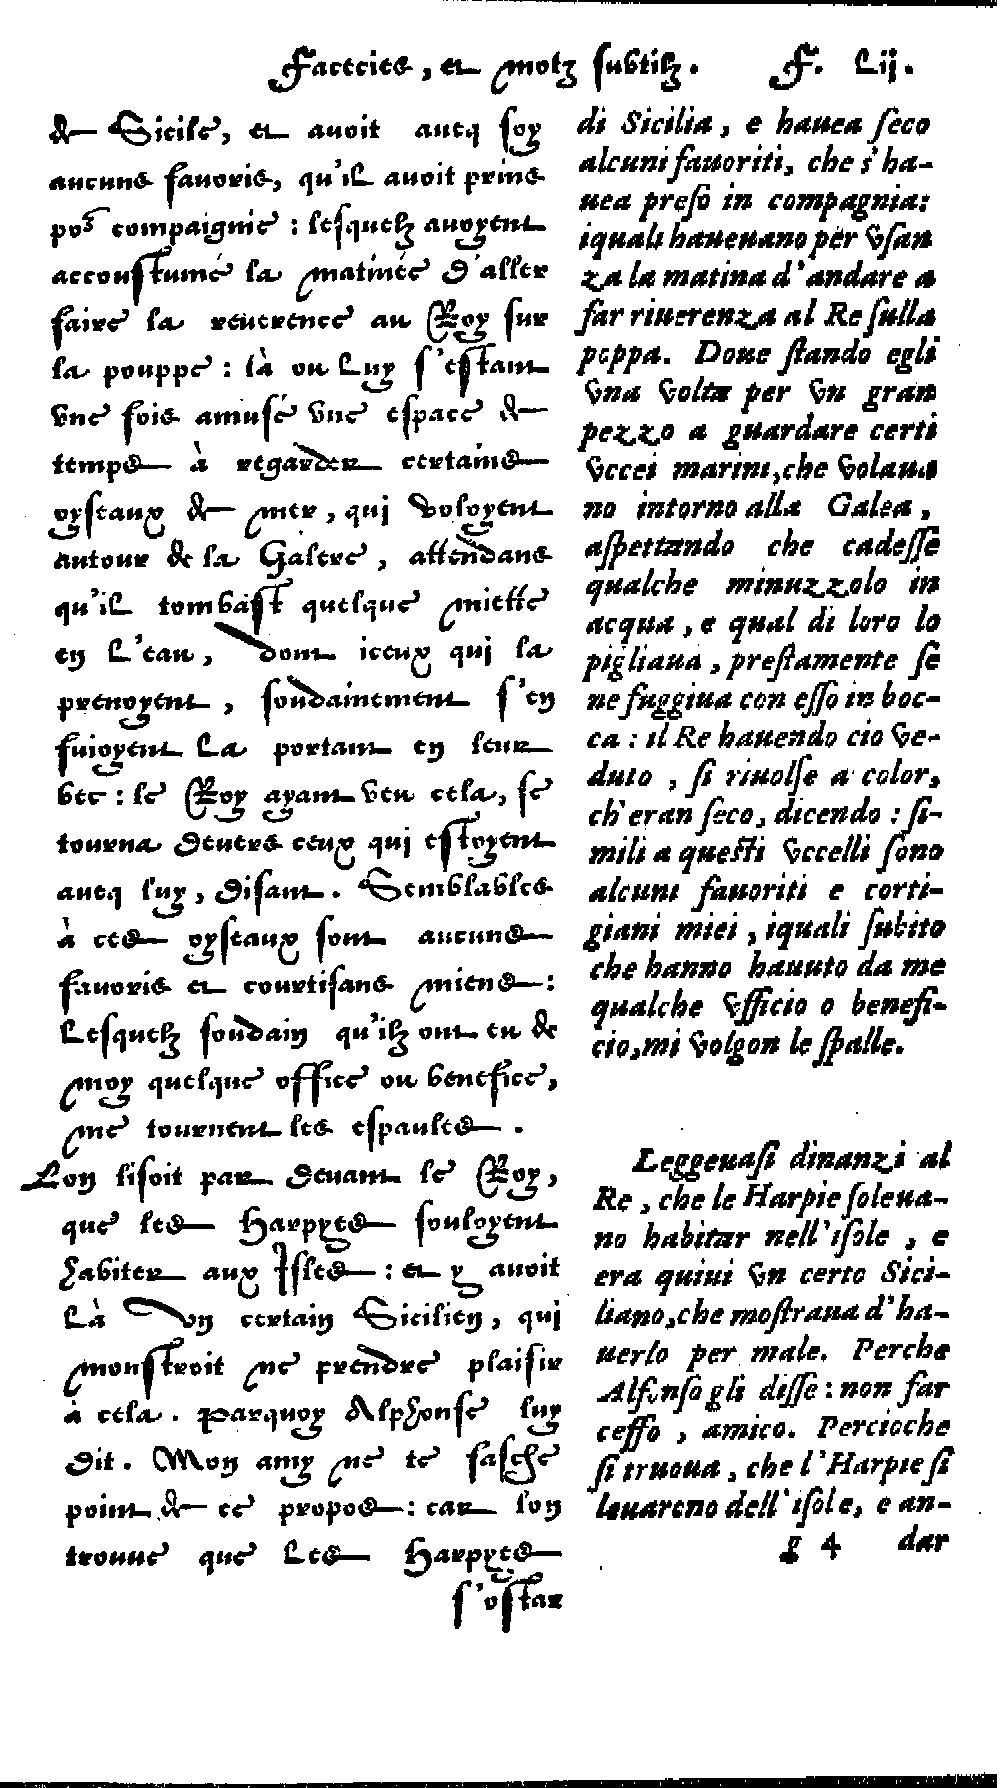 Facecies, et motz subtilz. F. Lij.
de Sicile, et avoit aueq soy
aucuns fauoris, qu'il avoit prins
po⁹ compaignie : lesquelz auoyent
accoustumé la matinée d'aller
faire la reuerence au Roy sur
la pouppe : là ou Luy s'estant
vne fois amusé vne espace de
temps à regarder certains
oyseaux de mer, qui voloyent
autour de la Galere, attendans
qu'il tombast quelque miette
en L'eau, dont iceux qui la
prenoyent, soudainement s'en
fuioyent La portant en leur
bec : le Roy ayant veu cela, se
tourna deuers ceux qui estoyent
aueq luy, disant. Semblables
à ces oyseaux sont aucuns
fauoris et courtisans miens :
Lesquelz soudain qu'ilz ont eu de
moy quelque office ou benefice,
me tournent les espaules.
Lon lisoit par deuant le Roy,
que les Harpyes souloyent
habiter aux Isles : et y auoit
Là vn certain Sicilien, qui
monstroit ne prendre plaisir
à cela. Parquoy Alphonse luy
dit. Mon amy ne te fasche
point de ce propos : car lon
trouue que Les Harpyes
s'ostar
di Sicilia, e hauea ſeco
alcuni fauoriti, che s'ha-
uea preſo in compagnia:
iquali haueuano per vſan
za la matina d'andare a
far riuerenza al Re ſulla
poppa. Doue ſtando egli
vna volta per vn gran
pezzo a guardare certi
vccei marini,che volaua
no intorno alla Galea,
aſpettando che cadeſſe
qualche minuzzolo in
acqua, e qual di loro lo
pigliaua, preſtamente ſe
ne fuggiua con eſſo in boc-
ca : il Re hauendo cio ve-
duto, ſi riuolſe a color,
ch'eran ſeco, dicendo : ſi-
mili a queſti vccelli ſono
alcuni fauoriti e corti-
giani miei, iquali ſubito
che hanno hauuto da me
qualche vfficio o benefi-
cio,mi volgon le ſpalle.
Leggeuaſi dinanzi al
Re, che le Harpie ſoleua-
no habitar nell'iſole, e
era quiui vn certo Sici-
liano,che moſtraua d'ha-
uerlo per male. Perche
Alfonſo gli diſſe : non far
ceffo, amico. Percioche
ſi truoua, che l'Harpie ſi
leuareno dell'iſole, e an-
g 4 dar